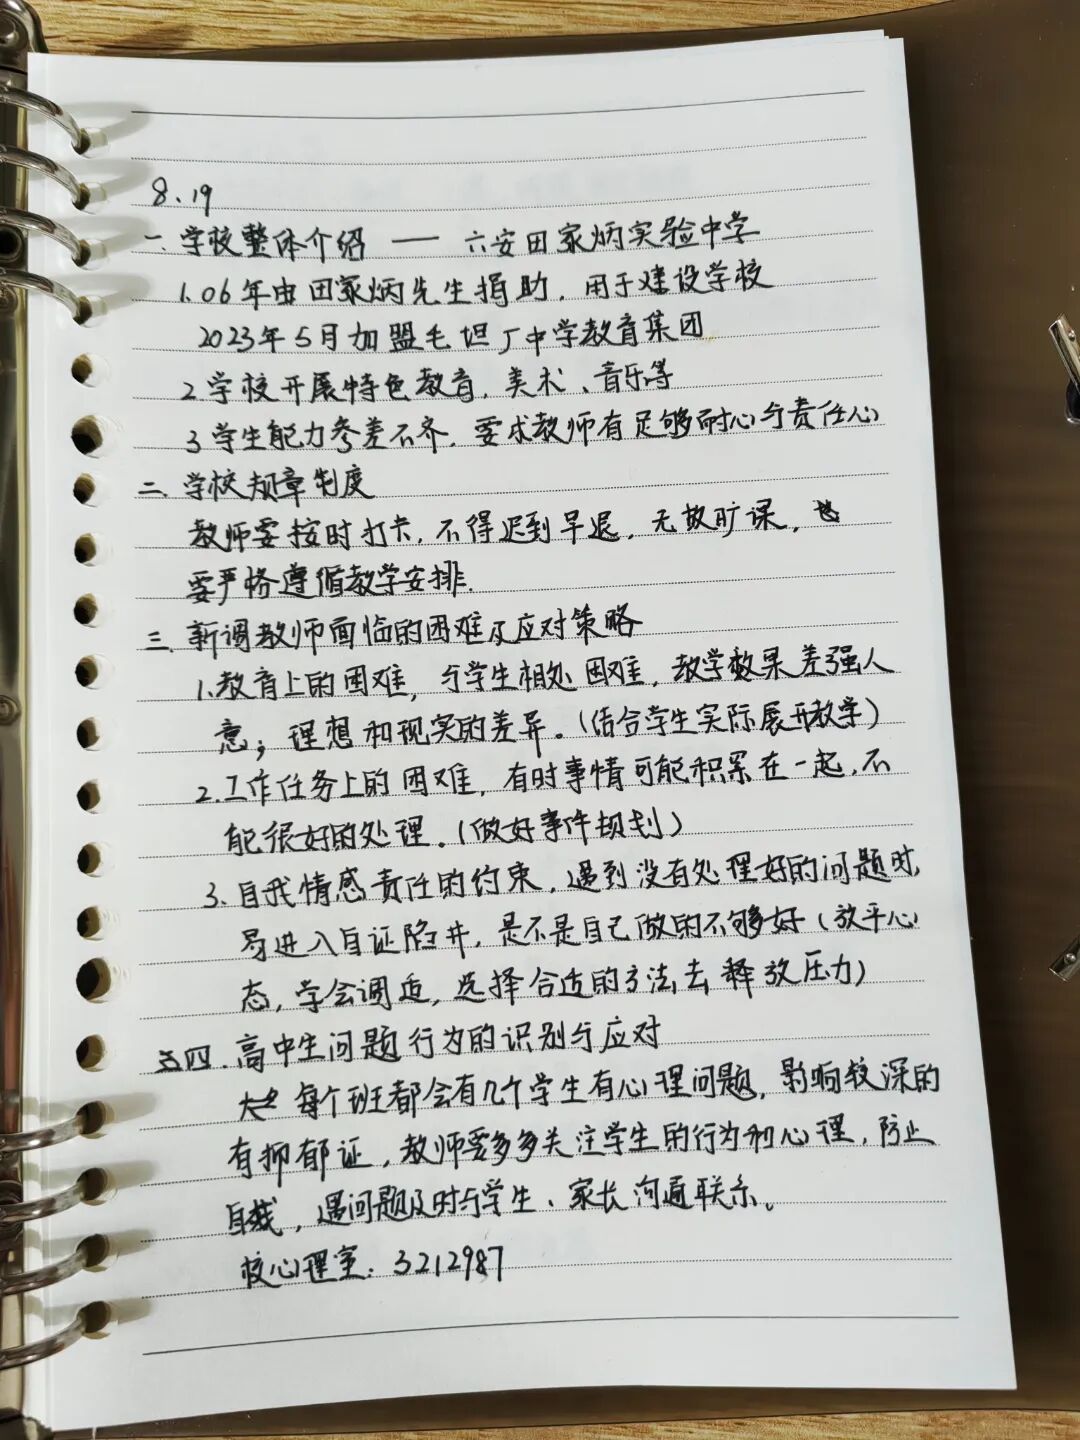 8、19
一、学校整体介绍 —— 六安田家炳实验中学
1.06年由田家炳先生捐助，用于建设学校
2023年5月加盟毛坦厂中学教育集团
2 学校开展特色教育，美术、音乐等
3 学生能力参差不齐，要求教师有足够耐心与责任心
二、学校规章制度
教师要按时打卡，不得迟到早退，无故旷课，
要严格遵循教学安排.
三、新调教师面临的困难及应对策略
1.教育上的困难，与学生相处困难，教学效果差强人
意；理想和现实的差异。(结合学生实际展开教学)
2.工作任务上的困难，有时事情可能积累在一起，不
能很好的处理。(做好事件规划)
3.自我情感责任的约束，遇到没有处理好的问题时，
易进入自证陷井，是不是自己做的不够好(放平心
态，学会调适，选择合适的方法去释放压力)
四.高中生问题行为的识别与应对
每个班都会有几个学生有心理问题，影响较深的
有抑郁证，教师要多多关注学生的行为和心理，防止
自残，遇问题及时与学生、家长沟通联系。
校心理室：3212987